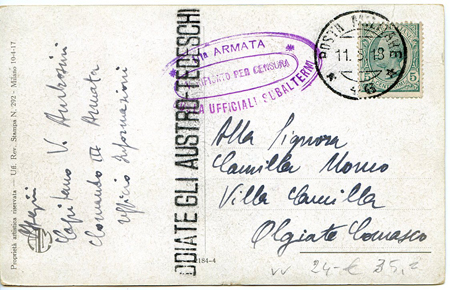 Proprietà artistica riservata — Uff. Rev. Stampa N. 292. Milano 10-4-17
Capitano V. Ambrosini
Comando III Armata
Ufficio Informazioni
ODIATE GLI AUSTRO-TEDESCHI
ARMATA
VERIFICATO PER CENSURA
UFFICIALI SUBALTERNI
POSTA MILITARE
11. 18
5
Alla Signora
Camilla Momo
Villa Camilla
Olgiate Comasco
2184-4
24-€ 35,=